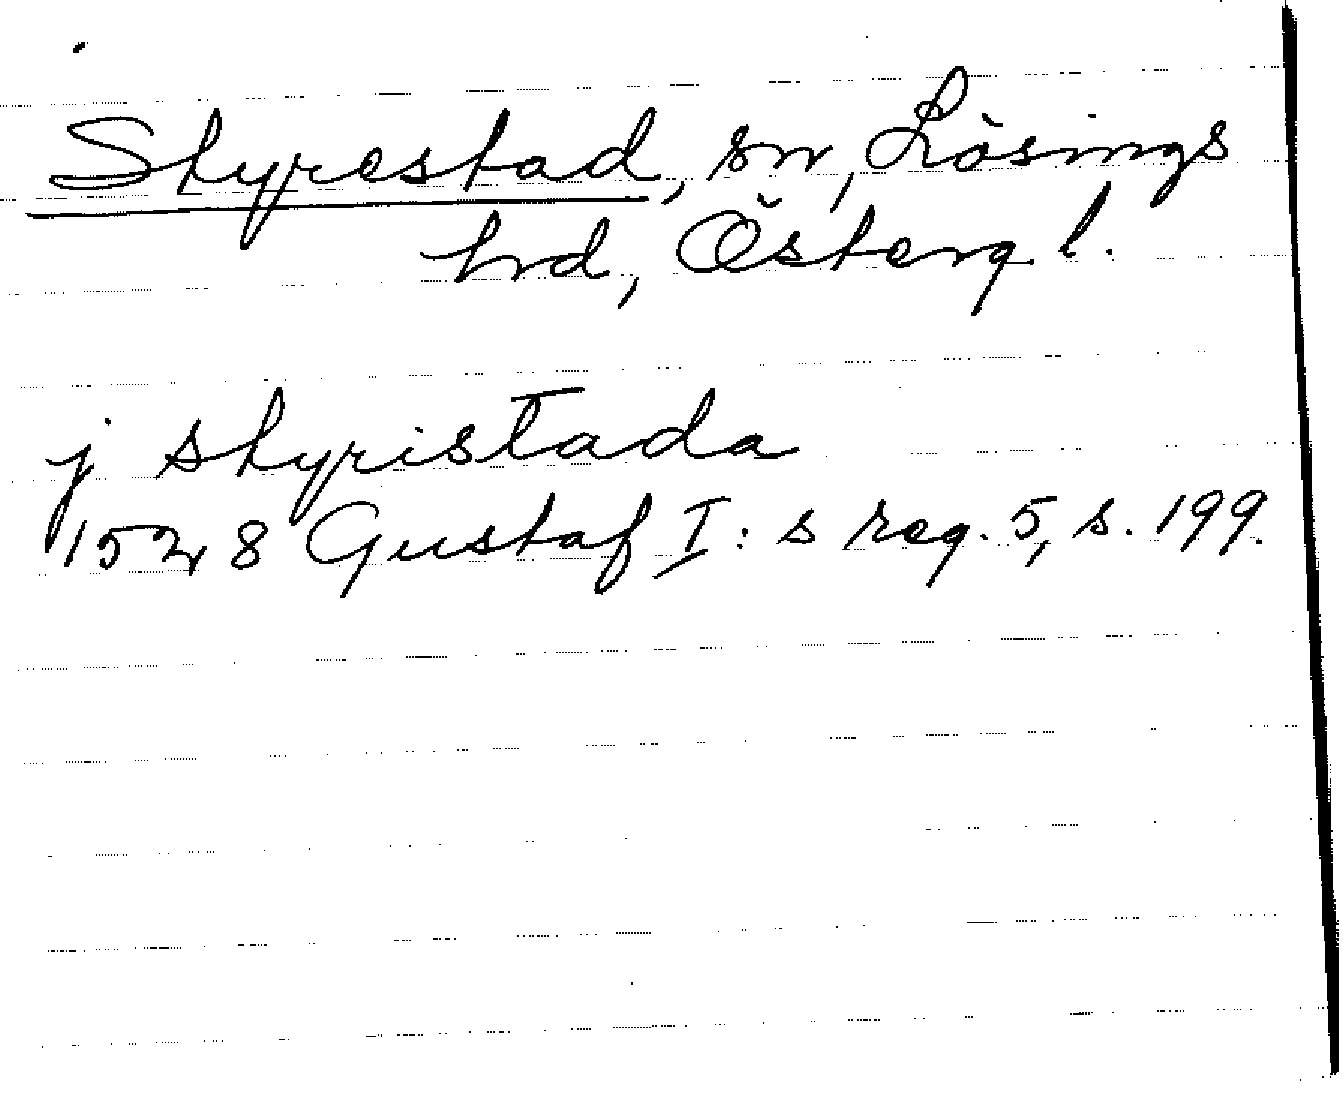 Styrestad, sn, Lösings
hrd, Österg l.
j styristada
1528 Gustaf I:s reg. 5, s. 199.